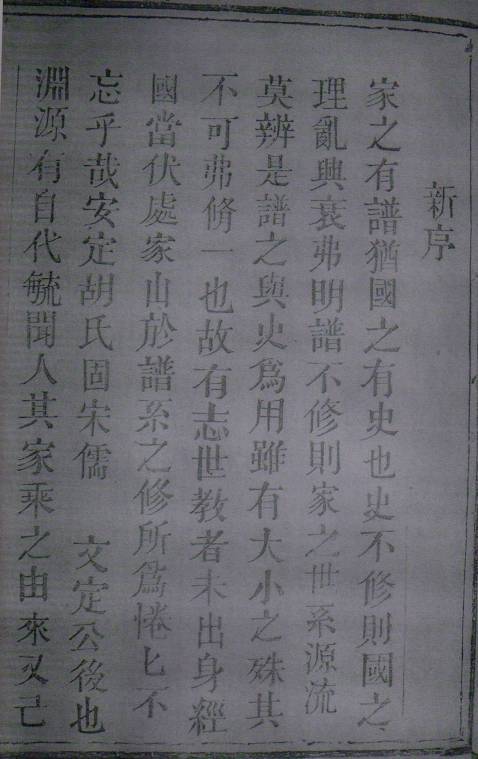 新序
家之有譜猶國之有史也史不修則國之
理亂興衰弗明譜不修則家之世系源流
莫辨是譜之與史爲用雖有大小之殊其
不可弗脩一也故有志世教者未出身經
國當伏處家山於譜系之修所爲惓匕不
忘乎哉安定胡氏固宋儒 文定公後也
淵源有自代毓聞人其家乘之由來又已